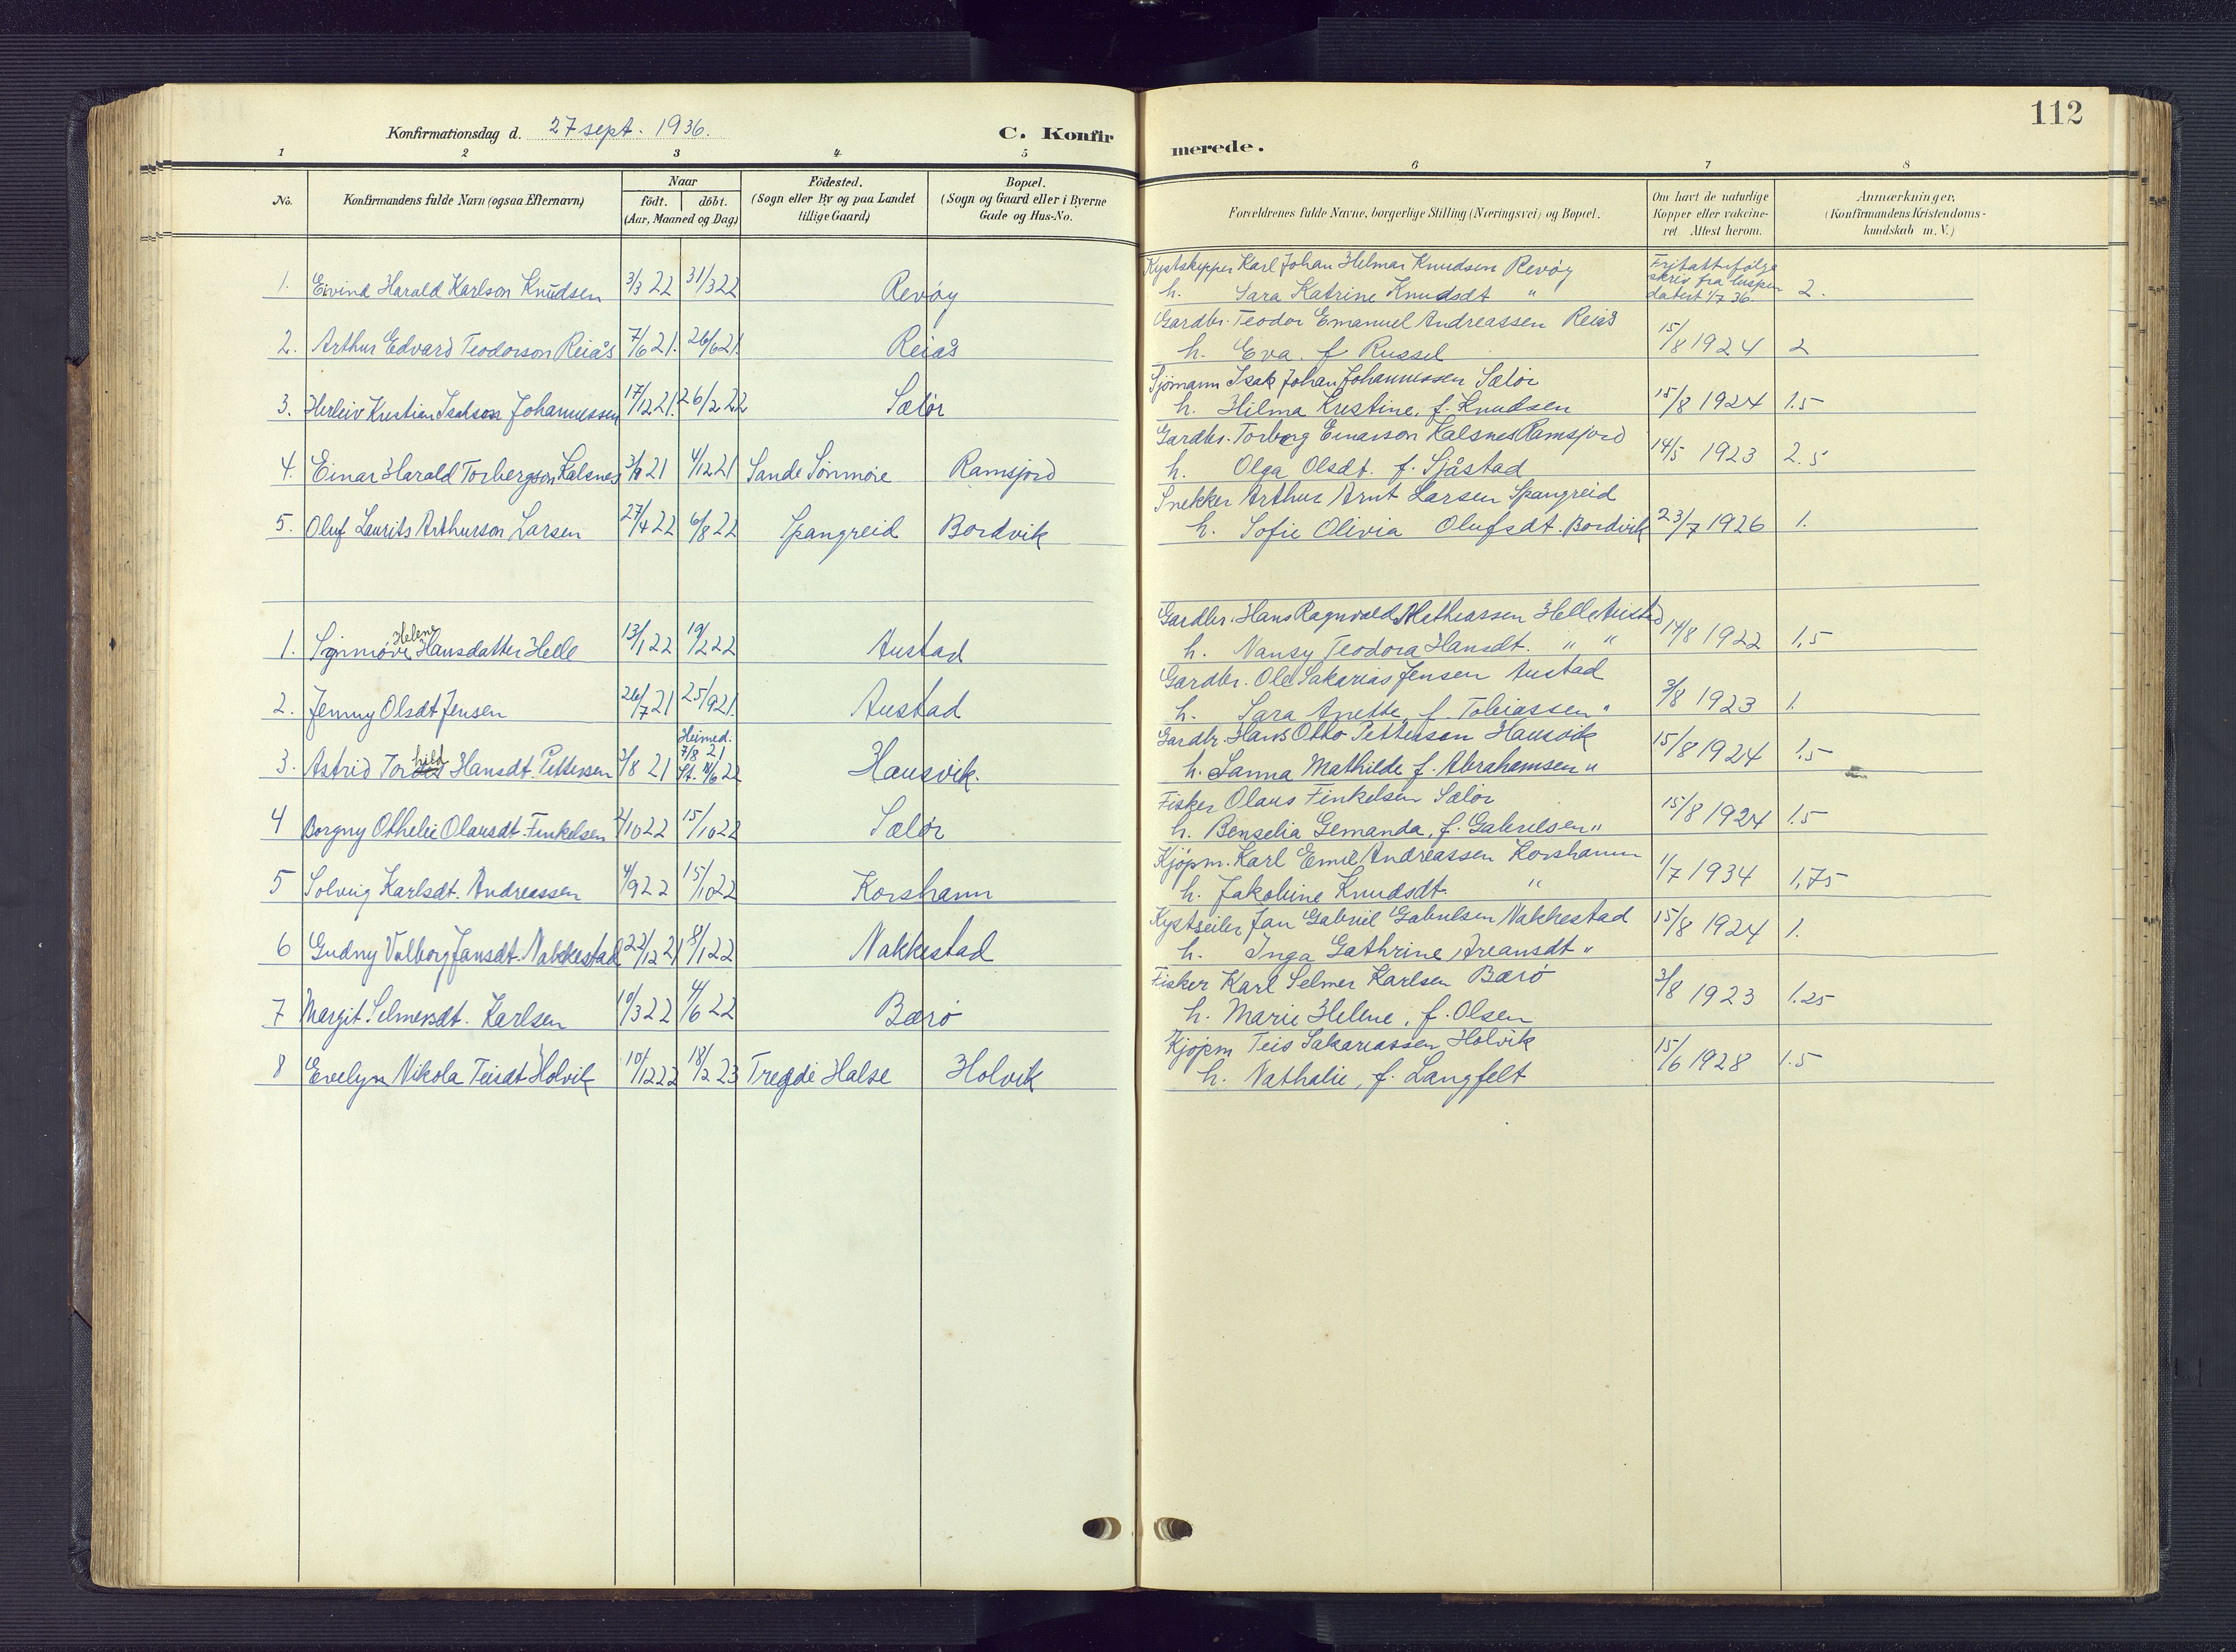 112
Konfirmationsdag d. 27 sept. 1936.
C. Konfirmerede.
1 2 3 4 5 6 7 8
No.
Konfirmandens fulde Navn (ogsaa Efternavn)
Naar
födt. | döbt.
(Aar, Maaned og Dag)
Födested.
(Sogn eller By og paa Landet
tillige Gaard)
Bopæl.
(Sogn og Gaard eller i Byerne
Gade og Hus-No.
Forældrenes fulde Navne, borgerlige Stilling (Næringsvei) og Bopæl.
Om havt de naturlige
Kopper eller vakcine-
ret Attest herom.
Anmærkninger.
(Konfirmandens Kristendoms-
kundskab m. V.)
1. Eivind Harald Karlson Knudsen 3/3 22 31/3 22 Revøy
Kystskipper Karl Johan Helmar Knudsen Revøy
h. Sara Katrine Knudsdt "
Fritatt ifølge
skriv fra
datert 1/7 36. 2.
2. Arthur Edvard Teodorson Reiås 7/6 21. 26/6 21. Reiås
Gardbr. Teodor Emanuel Andreassen Reiås
h. Eva. f. Russel 15/8 1924 2
3. Herleiv Kristian Isakson Johannessen 17/12 21. 26/2 22 Sælør
Sjømann Isak Johan Johannessen Sælør
h. Hilma Kristine, f. Knudsen 15/8 1924 1.5
4. Einar Harald Torbergson Kalsnes 3/9 21 4/12 21 Sande Sønmøre Ramsfjord
Gardbr. Torberg Einarson Kalsnes Ramsfjord
h. Olga Olsdt. f. Sjåstad 14/5 1923 2.5
5. Oluf Laurits Arthurson Larsen 27/4 22 6/8 22 Spangreid Bordvik
Snekker Arthur Arnt Larsen Spangreid
h. Sofie Olivia Olufsdt. Bordvik 23/7 1926 1.
1. Synnøve Helene Hansdatter Helle 13/1 22 19/2 22 Austad
Gardbr. Hans Ragnvald Mathiassen Helle Austad
h. Nansy Teodora Hansdt. " " 14/8 1922 1,5
2. Jenny Olsdt Jensen 26/7 21 25/9 21. Austad
Gardbr. Ole Sakarias Jensen Austad
h. Sara Anette f. Tobiassen " 3/8 1923 1.
3. Astrid Torhild Hansdt. Pettersen 3/8 21 Heimed. 7/8 21 St. 18/6 22 Hausvik.
Gardbr. Hans Otto Pettersen Hausvik
h. Sanna Mathilde f. Abrahamsen " 15/8 1924 1.5
4 Borgny Othelie Olausdt. Finkelsen 2/10 22 15/10 22 Sælør
Fisker Olaus Finkelsen Sælør
h. Benselia Gemanda, f. Gabrielsen " 15/8 1924 1.5
5 Solveig Karlsdt. Andreassen 4/9 22 15/10 22 Korshamn
Kjøpm. Karl Emil Andreassen Korshamn
h. Jakobine Knudsdt. " 1/7 1934 1,75
6 Gudny Valborg Jansdt. Nakkestad 22/12 21 8/1 22 Nakkestad
Kystseiler Jan Gabriel Gabrielsen Nakkestad
h. Inga Gathrine Areansdt " 15/8 1924 1.
7 Margit Selmersdt. Karlsen 10/3 22 4/6 22 Bærø
Fisker Karl Selmer Karlsen Bærø
h. Marie Helene, f. Olsen 3/8 1923 1.25
8 Evelyn Nikola Teisdt Holvik 10/12 22 18/2 23 Tregde Halse Holvik
Kjøpm Teis Sakariassen Holvik
h. Nathalie, f. Langfelt 15/6 1928 1.5